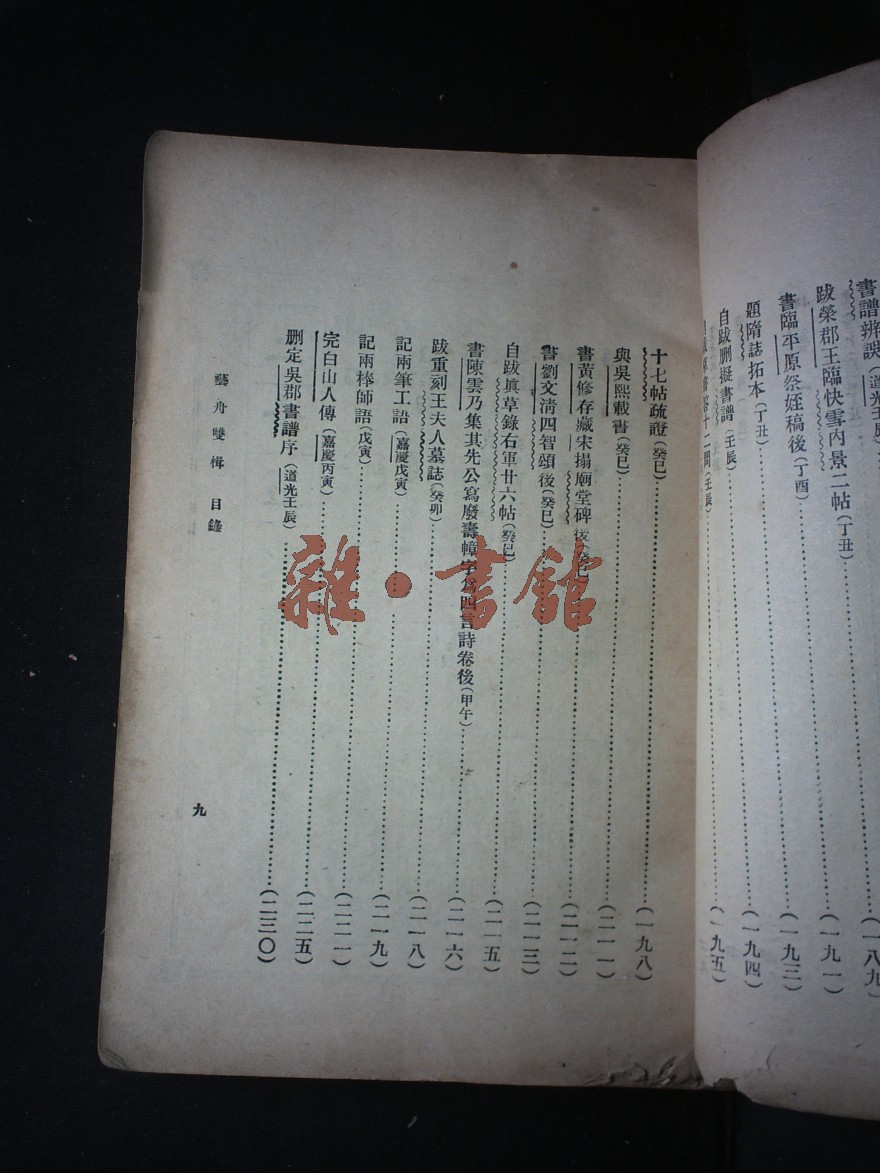 書譜辨誤(道光壬辰)……(一八九)
跋榮郡王臨快雪內景二帖(丁丑)……(一九一)
書臨平原祭姪稿後(丁酉)……(一九三)
題隋誌拓本(丁丑)……(一九四)
自跋刪擬書譜(壬辰)……(一九五)
十二問(壬辰)
十七帖疏證(癸巳)……(一九八)
與吳熙載書(癸巳)……(二一一)
書黃修存藏宋搨廟堂碑後(癸巳)……(二一二)
書劉文清四智頌後(癸巳)……(二一三)
自跋眞草錄右軍廿六帖(癸巳)……(二一五)
書陳雲乃集其先公寫廢壽幛字爲四言詩卷後(甲午)……(二一六)
跋重刻王夫人墓誌(癸卯)……(二一八)
記兩筆工語(嘉慶戊寅)……(二一九)
記兩棒師語(戊寅)……(二二一)
完白山人傳(嘉慶丙寅)……(二二五)
刪定吳郡書譜序(道光壬辰)……(二三〇)
藝舟雙楫 目錄
九
雜·書館